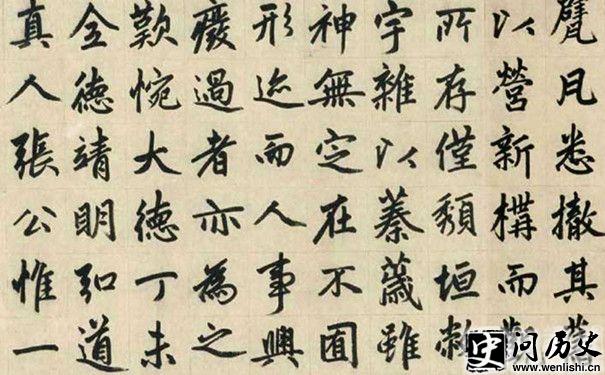 甓凡悉撤其
以營新構而
所存僅頹垣
宇雜以蓁薉雖
神無定在不囿
形迹而人事興
癈過者亦為之
歎惋大德丁未
全德靖明弘道
真人張公惟一
问历史
www.wenlishi.cn